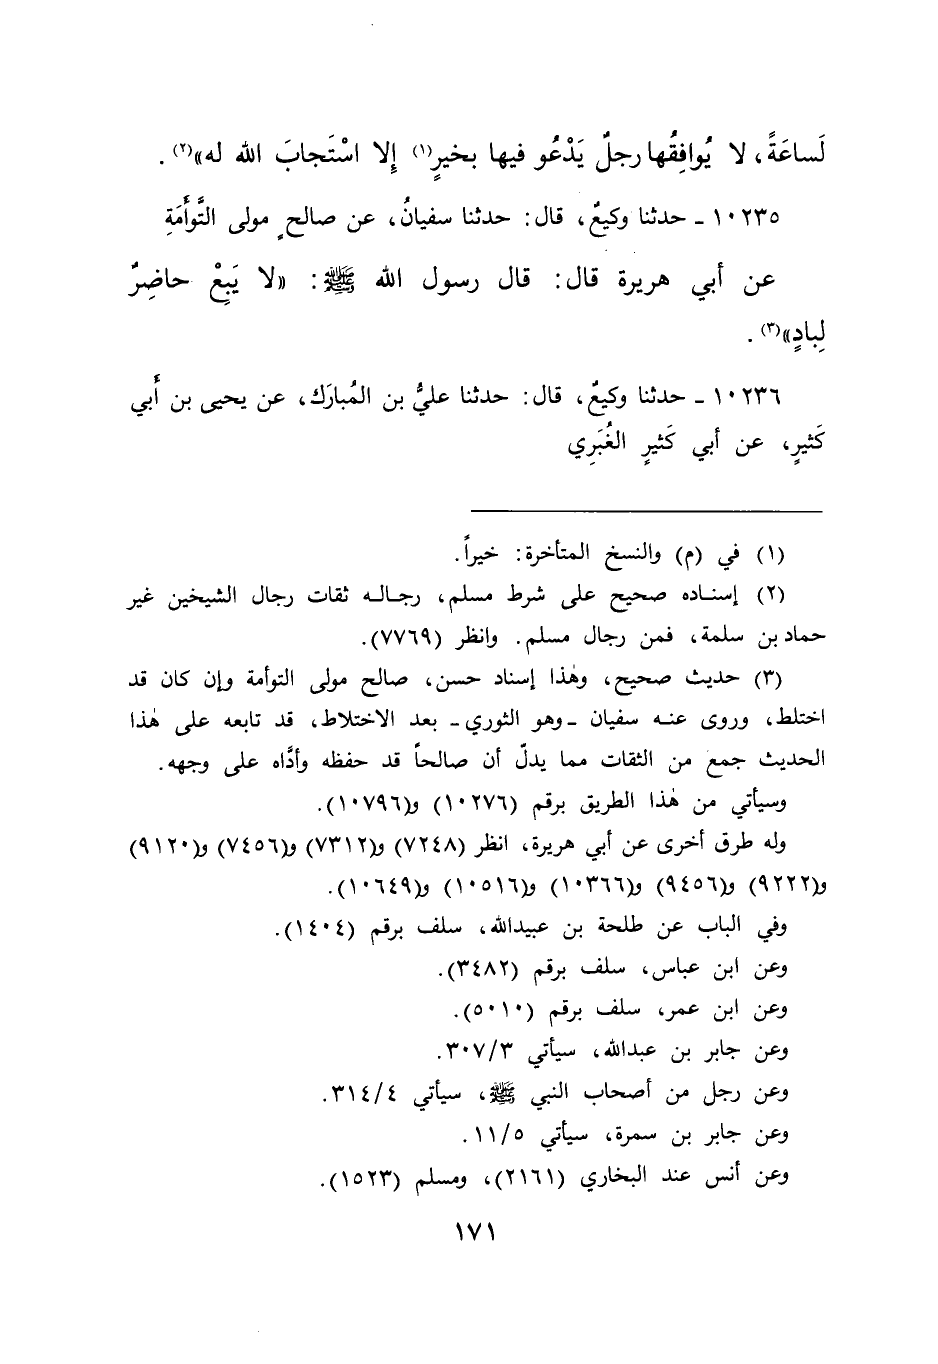 لَساعَةً، لا يُوافِقُها رجلٌ يَدْعُو فيها بخيرٍ(١) إِلا اسْتَجابَ الله له»(٢) .
١٠٢٣٥ ـ حدثنا وكيعٌ، قال: حدثنا سفيانُ، عن صالحٍ مولى التَّوأَمَةِ
عن أبي هريرة قال: قال رسول الله ﷺ: «لا يَبِعْ حاضِرٌ
لِبادٍ»(٣) .
١٠٢٣٦ ـ حدثنا وكيعٌ، قال: حدثنا عليُّ بن المُبارَك، عن يحيى بن أَبي
كَثيرٍ، عن أبي كَثيرٍ الغُبَرِي
(١) في (م) والنسخ المتأخرة: خيراً.
(٢) إسناده صحيح على شرط مسلم، رجاله ثقات رجال الشيخين غير
حماد بن سلمة، فمن رجال مسلم. وانظر (٧٧٦٩).
(٣) حديث صحيح، وهٰذا إسناد حسن، صالح مولى التوأمة وإن كان قد
اختلط، وروى عنه سفيان ـ وهو الثوري ـ بعد الاختلاط، قد تابعه على هٰذا
الحديث جمع من الثقات مما يدلّ أن صالحاً قد حفظه وأدَّاه على وجهه.
وسيأتي من هٰذا الطريق برقم (١٠٢٧٦) و(١٠٧٩٦).
وله طرق أخرى عن أبي هريرة، انظر (٧٢٤٨) و(٧٣١٢) و(٧٤٥٦) و(٩١٢٠)
و(٩٢٢٢) و(٩٤٥٦) و(١٠٣٦٦) و(١٠٥١٦) و(١٠٦٤٩).
وفي الباب عن طلحة بن عبيدالله، سلف برقم (١٤٠٤).
وعن ابن عباس، سلف برقم (٣٤٨٢).
وعن ابن عمر، سلف برقم (٥٠١٠).
وعن جابر بن عبدالله، سيأتي ٣٠٧/٣.
وعن رجل من أصحاب النبي ﷺ، سيأتي ٣١٤/٤.
وعن جابر بن سمرة، سيأتي ١١/٥.
وعن أنس عند البخاري (٢١٦١)، ومسلم (١٥٢٣).
١٧١